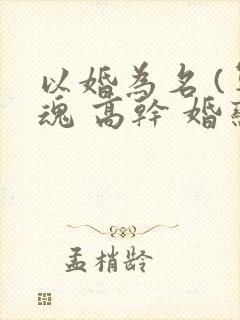 以婚為名(
魂 高幹 婚
孟梢龄